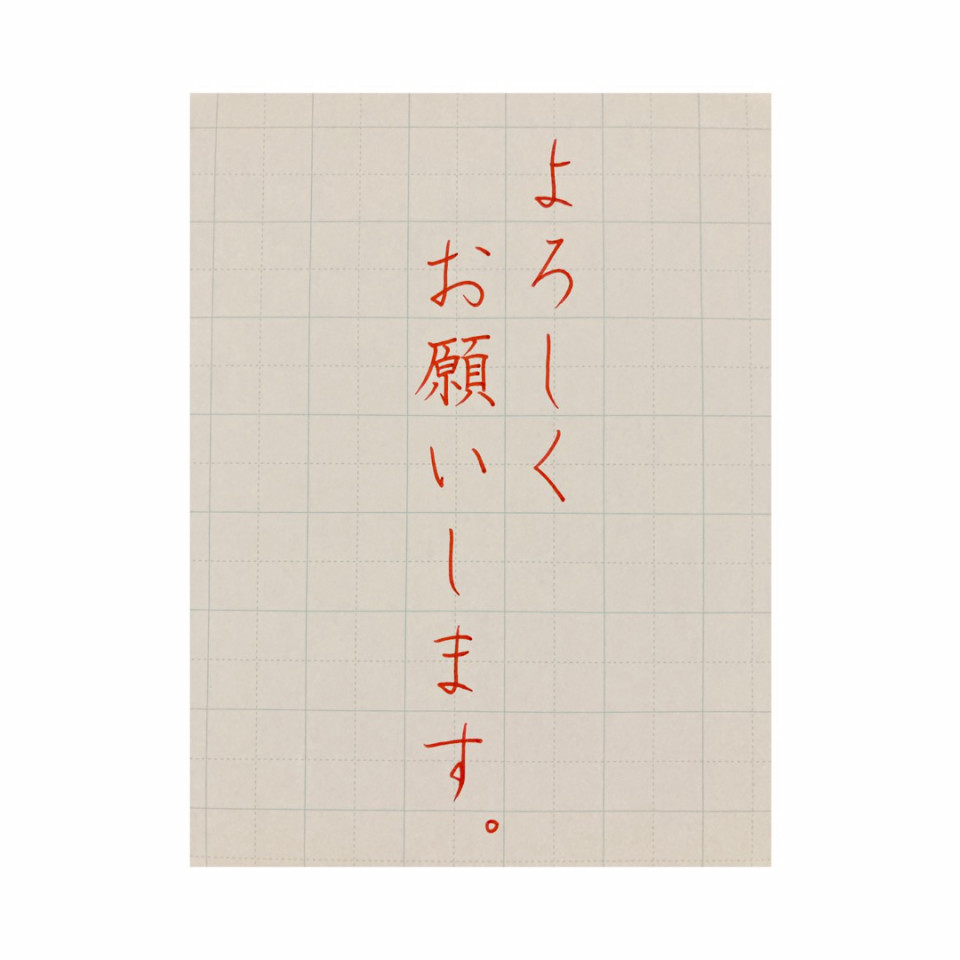 よろしく
お願いします。